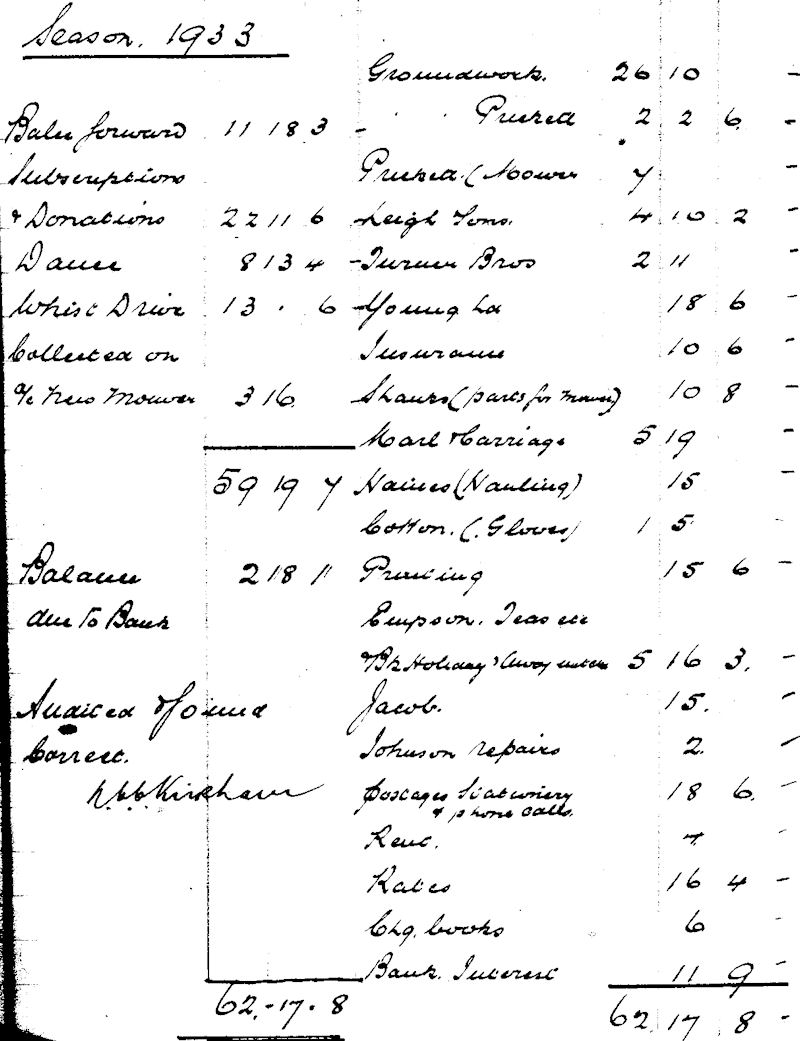 Season. 1933
Groundwork. 26 10 -
Balce forward 11 18 3 - " 2 2 6 -
Subscriptions (Mower 7
& Donations 22 11 6 Leigh Sons. 4 10 2 -
Dance 8 13 4 - Turner Bros 2 11 -
Whist Drive 13 . 6 Young La 18 6 -
Collected on Insurance 10 6 -
a/c New Mower 3 16 Shaws (parts for mower) 10 8 -
Marl & Carriage 5 19 -
59 19 7 Haines (Hauling) 15 -
Cotton. (Gloves) 1 5 -
Balance 2 18 1 Printing 15 6 -
due to Bank Empson. Teas etc
& Bk Holiday & Away 5 16 3. -
Audited & found Jacob. 15. -
Correct. Johnson repairs 2. -
Kirkham postages Stationery 18 6. -
& phone calls.
Rent. 7 -
Rates 16 4 -
Chq. books 6 -
Bank Interest 11 9 -
62.-17.8 62 17 8 -